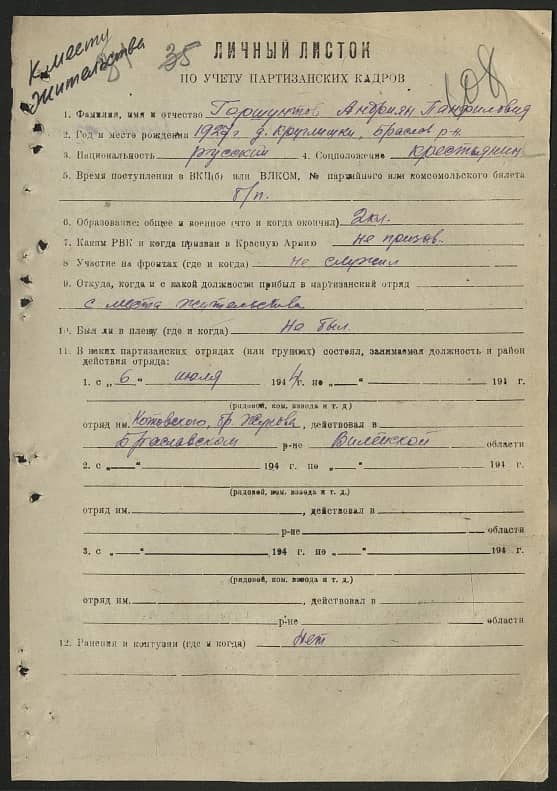 К месту
жительства
35
108
ЛИЧНЫЙ ЛИСТОК
ПО УЧЕТУ ПАРТИЗАНСКИХ КАДРОВ
1. Фамилия, имя и отчество Горшунтов Андриян Панфилович
2. Год и место рождения 1927 г д. Круглишки, Браслов р-н.
3. Национальность русский 4. Соцположение крестьянин
5. Время поступления в ВКП(б) или ВЛКСМ, № партийного или комсомольского билета
б/п.
6. Образование: общее и военное (что и когда окончил) 2 кл.
7. Каким РВК и когда призван в Красную Армию не призов.
8 Участие на фронтах (где и когда) не служил
9. Откуда, когда и с какой должности прибыл в партизанский отряд
с места жительства
10. Был ли в плену (где и когда) Не был.
11. В каких партизанских отрядах (или группах) состоял, занимаемая должность и район
действия отряда:
1. с „ 6 “ июля 1944 г. по „ “ 194 г.
(рядовой, ком. взвода и т. д)
отряд им. Котовского, бр. Жукова, действовал в
Браславском р-не Вилейской области
2. с „ “ 194 г. по „ “ 194 г.
(рядовой, ком, взвода и т. д.)
отряд им. , действовал в
р-не области
3. с „ “ 194 г. по „ “ 194 г.
(рядовой, ком. взвода и т. д.)
отряд им. , действовал в
р-не области
12. Ранения и контузии (где и когда) Нет